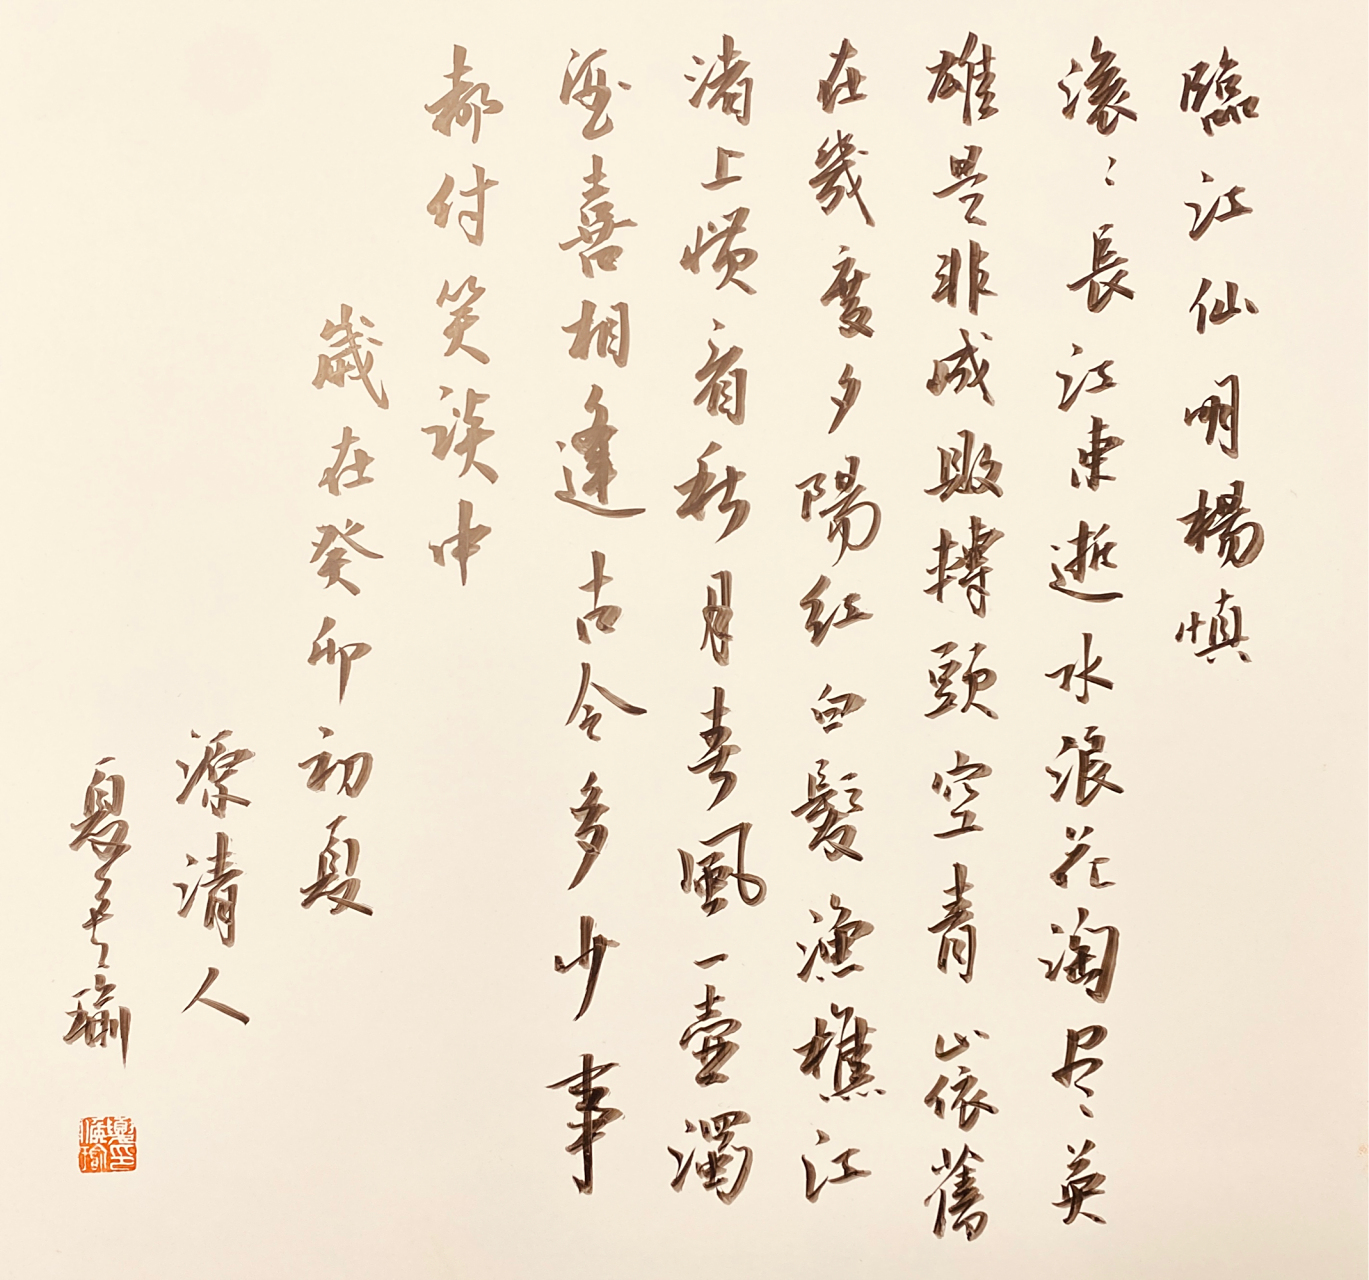 臨江仙明楊慎
滾〻長江東逝水浪花淘尽英
雄是非成敗轉頭空青山依舊
在幾度夕陽紅白髮漁樵江
渚上慣看秋月春風一壺濁
酒喜相逢古今多少事
都付笑談中
歲在癸卯初夏
源清人
夏